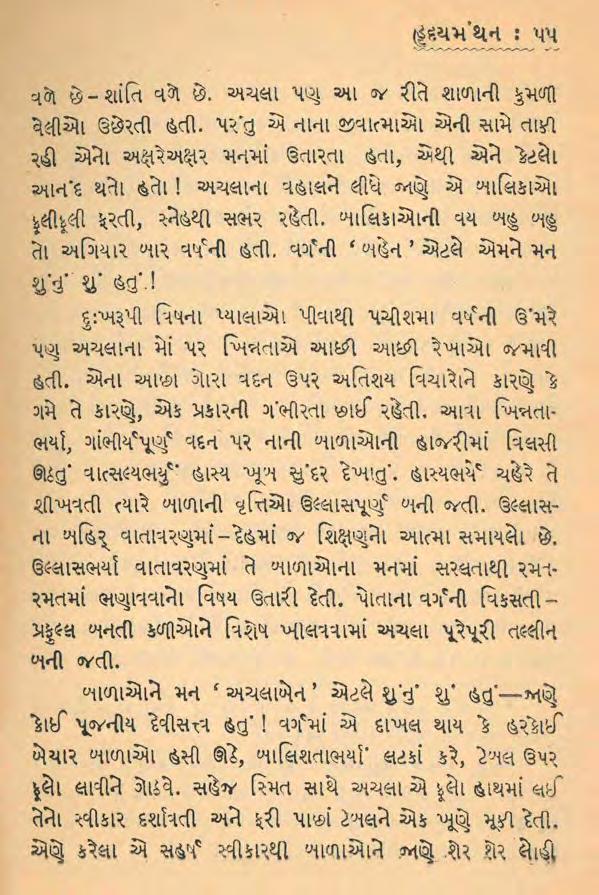 હૃદયમંથન : ૫૫
વળે છે–શાંતિ વળે છે. અચલા પણ આ જ રીતે શાળાની કુમળી
વેલીઓ ઉછેરતી હતી. પરંતુ એ નાના જીવાત્માઓ એની સામે તાકી
રહી એનો અક્ષરેઅક્ષર મનમાં ઉતારતા હતા, એથી એને કેટલો
આનંદ થતો હતો! અચલાના વહાલને લીધે જાણે એ બાલિકાઓ
ફૂલીફૂલી ફરતી, સ્નેહથી સભર રહેતી. બાલિકાઓની વય બહુ બહુ
તો અગિયાર બાર વર્ષની હતી. વર્ગની ‘બહેન’ એટલે એમને મન
શુંનું શું હતું.!
દુઃખરૂપી વિષના પ્યાલાઓ પીવાથી પચીશમા વર્ષની ઉંમરે
પણ અચલાના મોં પર ખિન્નતાએ આછી આછી રેખાઓ જમાવી
હતી. એના આછા ગોરા વદન ઉપર અતિશય વિચારોને કારણે કે
ગમે તે કારણે, એક પ્રકારની ગંભીરતા છાઈ રહેતી. આવા ખિન્નતા-
ભર્યા, ગાંભીર્યપૂર્ણ વદન પર નાની બાળાઓની હાજરીમાં વિલસી
ઊઠતું વાત્સલ્યભર્યું હાસ્ય ખૂબ સુંદર દેખાતું. હાસ્યભર્યે ચહેરે તે
શીખવતી ત્યારે બાળાની વૃત્તિઓ ઉલ્લાસપૂર્ણ બની જતી. ઉલ્લાસ-
ના બહિર્ વાતાવરણમાં–દેહમાં જ શિક્ષણનો આત્મા સમાયલો છે.
ઉલ્લાસભર્યા વાતાવરણમાં તે બાળાઓના મનમાં સરલતાથી રમત-
રમતમાં ભણાવવાનો વિષય ઉતારી દેતી. પોતાના વર્ગની વિકસતી–
પ્રફુલ્લ બનતી કળીઓને વિશેષ ખીલવવામાં અચલા પૂરેપૂરી તલ્લીન
બની જતી.
બાળાઓને મન ‘અચલાબેન’ એટલે શુંનું શું હતું—જાણે
કોઈ પૂજનીય દેવીસત્ત્વ હતું! વર્ગમાં એ દાખલ થાય કે હરકોઈ
બેચાર બાળાઓ હસી ઊઠે, બાલિશતાભર્યાં લટકાં કરે, ટેબલ ઉપર
ફૂલો લાવીને ગોઠવે. સહેજ સ્મિત સાથે અચલા એ ફૂલો હાથમાં લઈ
તેનો સ્વીકાર દર્શાવતી અને ફરી પાછાં ટેબલને એક ખૂણે મૂકી દેતી.
એણે કરેલા એ સહર્ષ સ્વીકારથી બાળાઓને જાણે શેર શેર લોહી